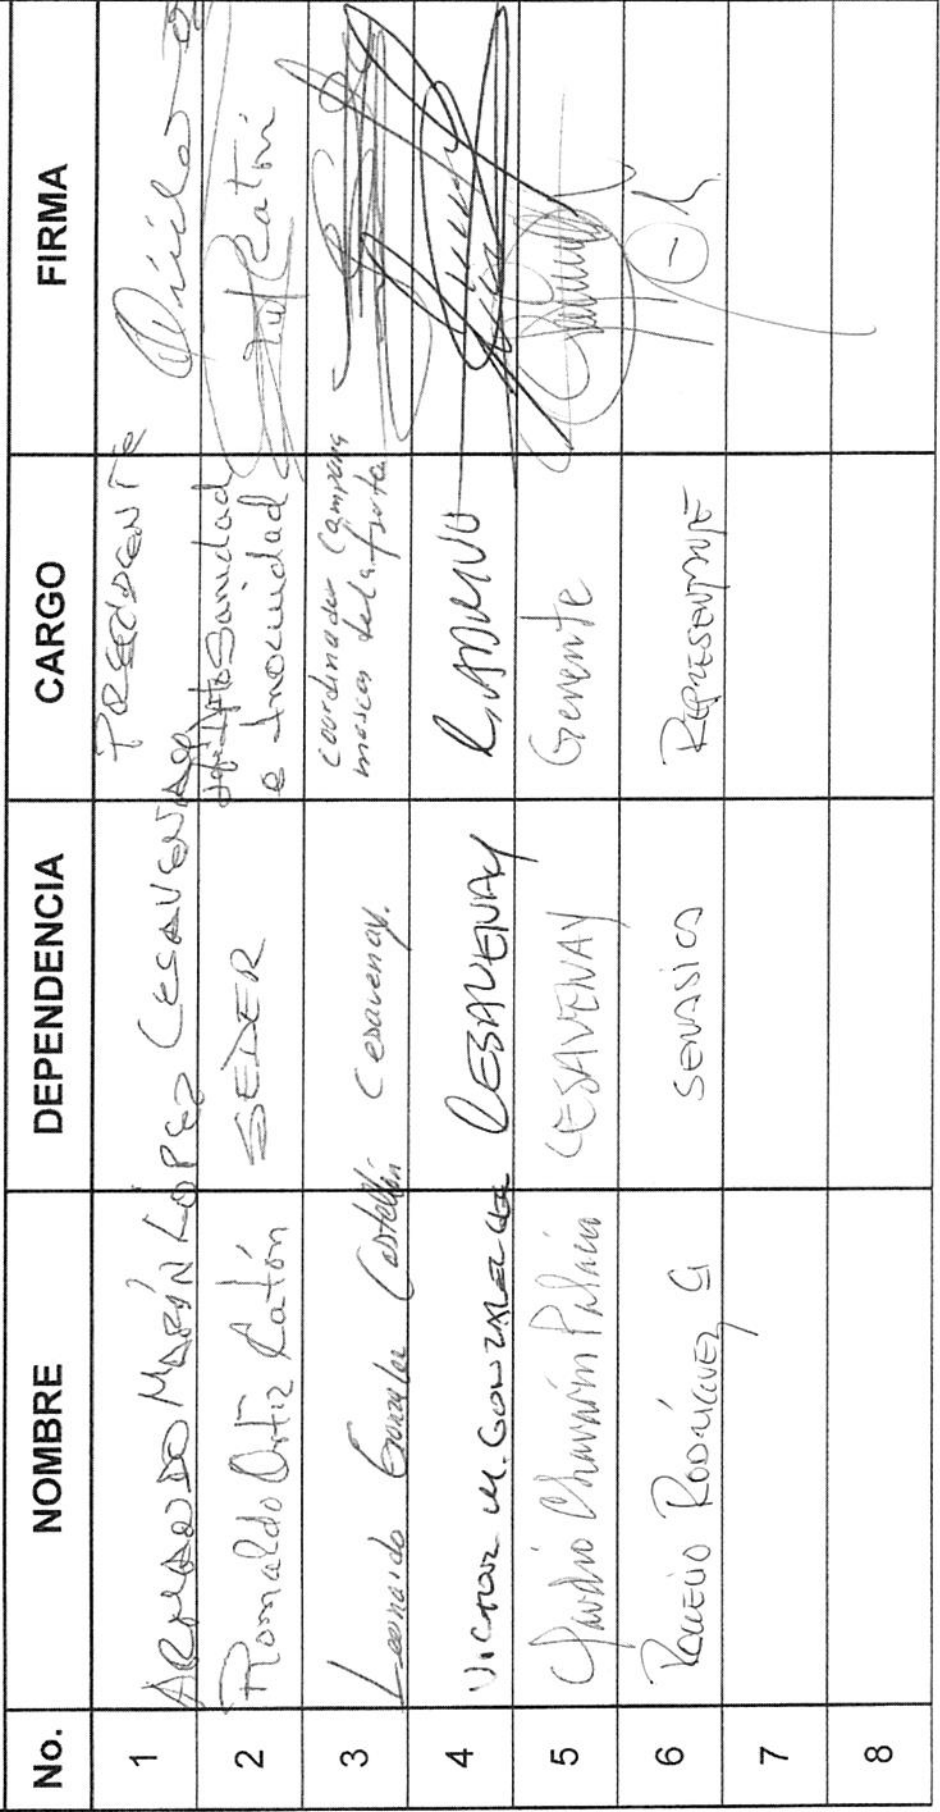 No. NOMBRE DEPENDENCIA CARGO FIRMA
1 ARMANDO MARÍN LÓPEZ CESAVENAY PRESIDENTE
2 Romaldo Ortiz Catón SEDER Sanidad
e Inocuidad
3 Leonardo González Castellón Cesavenay. Coordinador Campaña
moscas de la fruta
4 VICTOR M. GONZALEZ CESAVENAY
5 Claudio Chavarín Palacio CESAVENAY Gerente
6 ROGELIO RODRÍGUEZ G SENASICA REPRESENTANTE
7
8